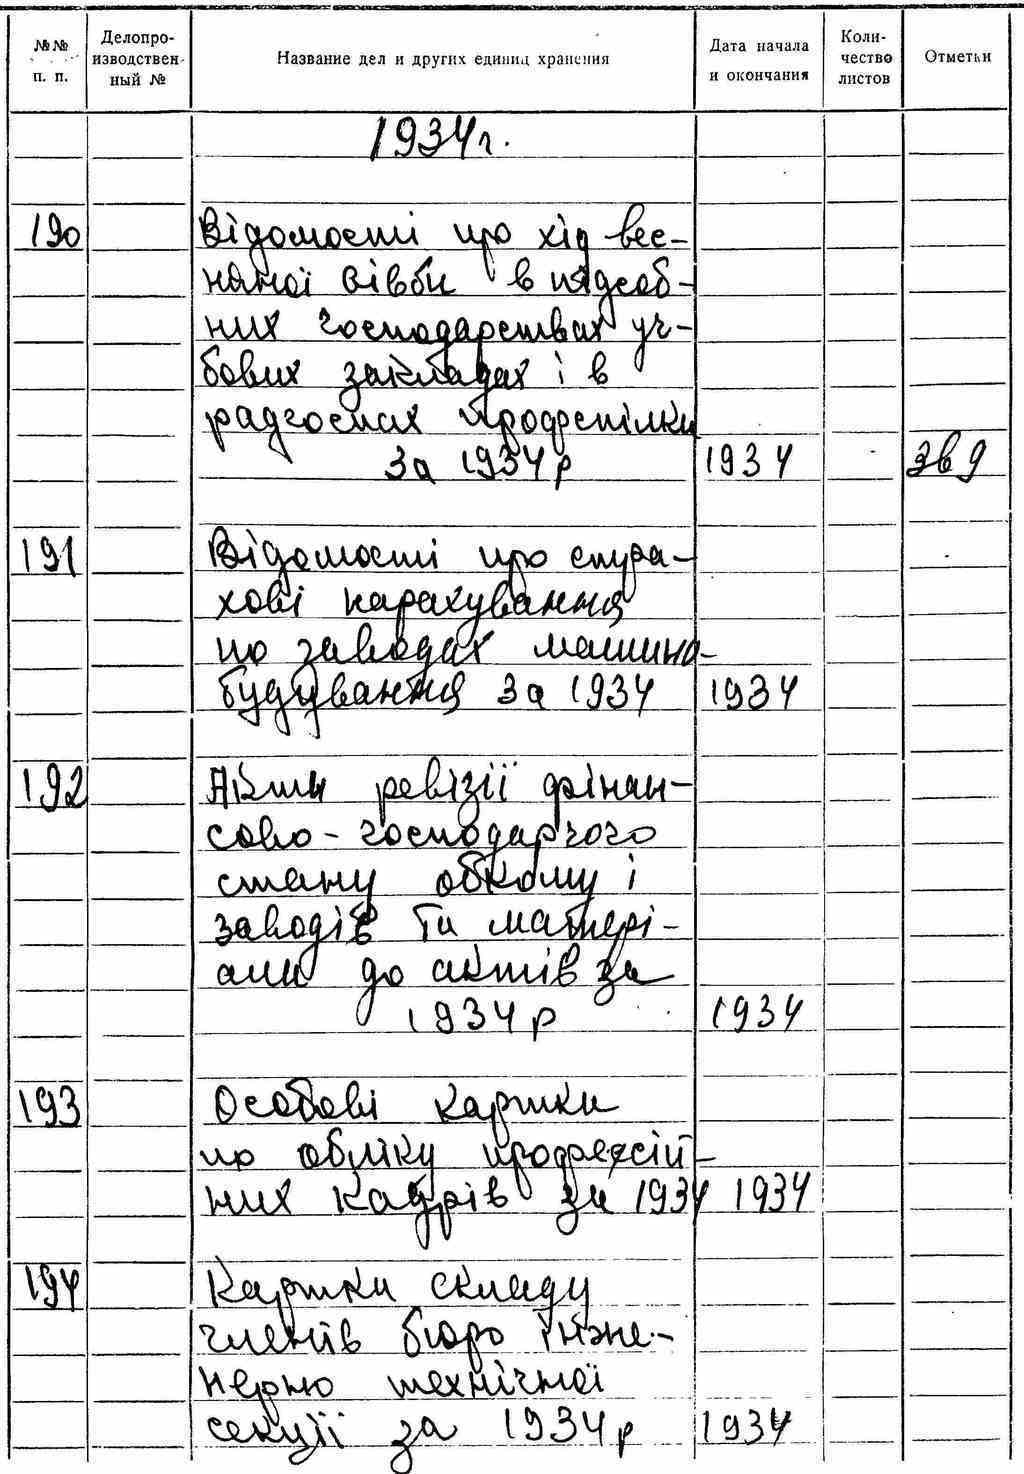 №№ п. п. Делопроизводственный № Название дел и других единиц хранения Дата начала и окончания Количество листов Отметки
1934 г.
190 Відомості про хід вес-
няної сівби в підсоб-
них господарствах уч-
бових закладах і в
радгоспах профспілки
за 1934 р 1934 зв 9
191 Відомості про стра-
хові нарахування
по заводах машино-
будування за 1934 1934
192 Акти ревізії фінан-
сово-господарчого
стану обкому і
заводів та матері-
али до актів за
1934 р 1934
193 Особові картки
по обліку професій-
них кадрів за 1934 1934
194 Картки складу
членів бюро інже-
нерно технічної
секції за 1934 р 1934